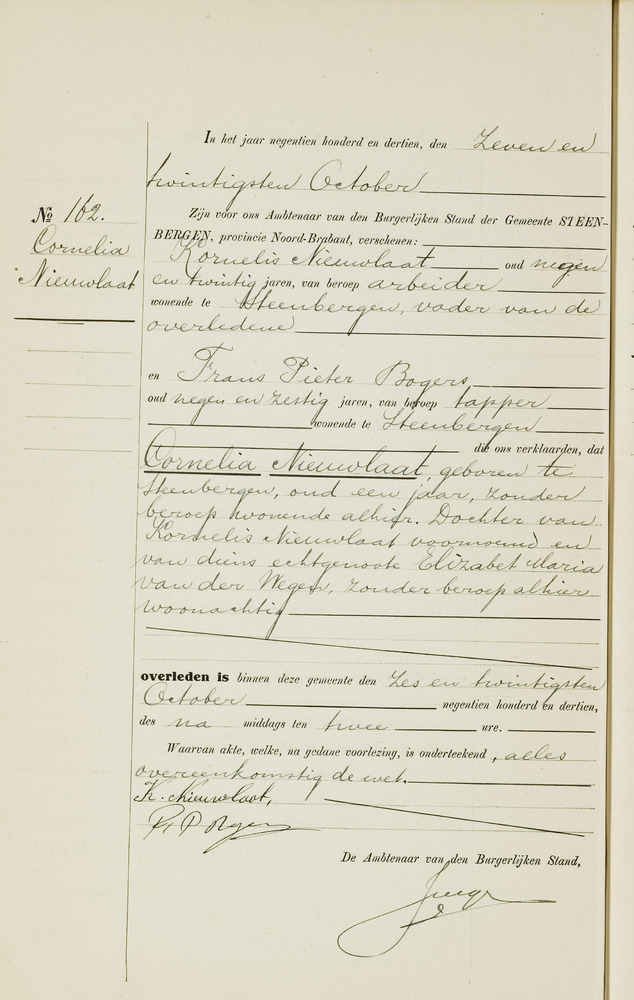 In het jaar negentien honderd en dertien, den Zeven en
twintigsten October
Zijn voor ons Ambtenaar van den Burgerlijken Stand der Gemeente STEEN-
BERGEN, provincie Noord-Brabant, verschenen:
Kornelis Nieuwlaat oud negen
en twintig jaren, van beroep arbeider
wonende te Steenbergen, vader van de
overledene
en Frans Pieter Bogers
oud negen en zestig jaren, van beroep tapper
wonende te Steenbergen
die ons verklaarden, dat
Cornelia Nieuwlaat, geboren te
Steenbergen, oud een jaar, zonder
beroep wonende alhier. Dochter van
Kornelis Nieuwlaat voornoemd en
van diens echtgenoote Elizabet Maria
van der Wegen, zonder beroep alhier
woonachtig
overleden is binnen deze gemeente den Zes en twintigsten
October negentien honderd en dertien,
des na middags ten twee ure.
Waarvan akte, welke, na gedane voorlezing, is onderteekend, alles
overeenkomstig de wet.
K. Nieuwlaat,
De Ambtenaar van den Burgerlijken Stand,
No 162.
Cornelia
Nieuwlaat